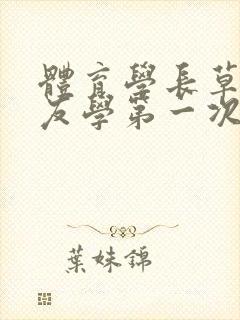 體育學長草
友學第一次
葉妹錦